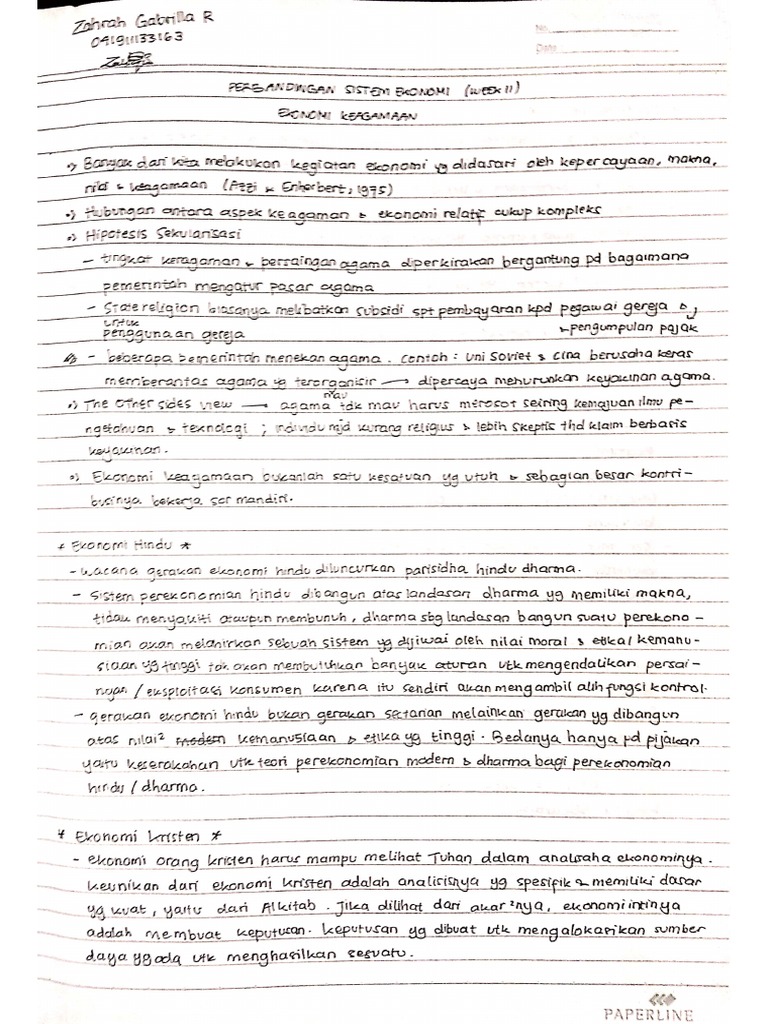 Zahrah Gabrilla R
041911133163
No.
Date
PERBANDINGAN SISTEM EKONOMI (WEEK 11)
EKONOMI KEAGAMAAN
•) Banyak dari kita melakukan kegiatan ekonomi yg didasari oleh kepercayaan, makna,
nilai & keagamaan (Azzi & Enherbert, 1975)
•) Hubungan antara aspek keagaman & ekonomi relatif cukup kompleks
•) Hipotesis Sekularisasi
- tingkat keragaman & persaingan agama diperkirakan bergantung pd bagaimana
pemerintah mengatur pasar agama
- State religion biasanya melibatkan subsidi spt pembayaran kpd pegawai gereja &
untuk
penggunaan gereja
↳ pengumpulan pajak
- beberapa pemerintah menekan agama. Contoh : Uni Soviet & Cina berusaha keras
memberantas agama yg terorganisir → dipercaya menurunkan keyakinan agama.
mau
•) The other sides view → agama tdk mau harus merosot seiring kemajuan ilmu pe-
ngetahuan & teknologi ; individu mjd kurang religius & lebih skeptis thd klaim berbasis
keyakinan.
•) Ekonomi keagamaan bukanlah satu kesatuan yg utuh & sebagian besar kontri-
businya bekerja scr mandiri.
* Ekonomi Hindu *
- wacana gerakan ekonomi hindu diluncurkan parisidha hindu dharma.
- Sistem perekonomian hindu dibangun atas landasan dharma yg memiliki makna,
tidak menyakiti ataupun membunuh, dharma sbg landasan bangun suatu perekono-
mian akan melahirkan sebuah sistem yg dijiwai oleh nilai moral & etika/ kemanu-
siaan yg tinggi tak akan membutuhkan banyak aturan utk mengendalikan persai-
ngan / eksploitasi konsumen karena itu sendiri akan mengambil alih fungsi kontrol.
- gerakan ekonomi hindu bukan gerakan sectarian melainkan gerakan yg dibangun
atas nilai² modern kemanusiaan & etika yg tinggi. Bedanya hanya pd pijakan
yaitu keserakahan utk teori perekonomian modern & dharma bagi perekonomian
hindu / dharma.
* Ekonomi Kristen *
- ekonomi orang kristen harus mampu melihat Tuhan dalam analisaha ekonominya.
Keunikan dari ekonomi kristen adalah analisisnya yg spesifik & memiliki dasar
yg kuat, yaitu dari Alkitab. Jika dilihat dari akar²nya, ekonomi intinya
adalah membuat keputusan. Keputusan yg dibuat utk mengalokasikan sumber
daya yg ada utk menghasilkan sesuatu.
PAPERLINE